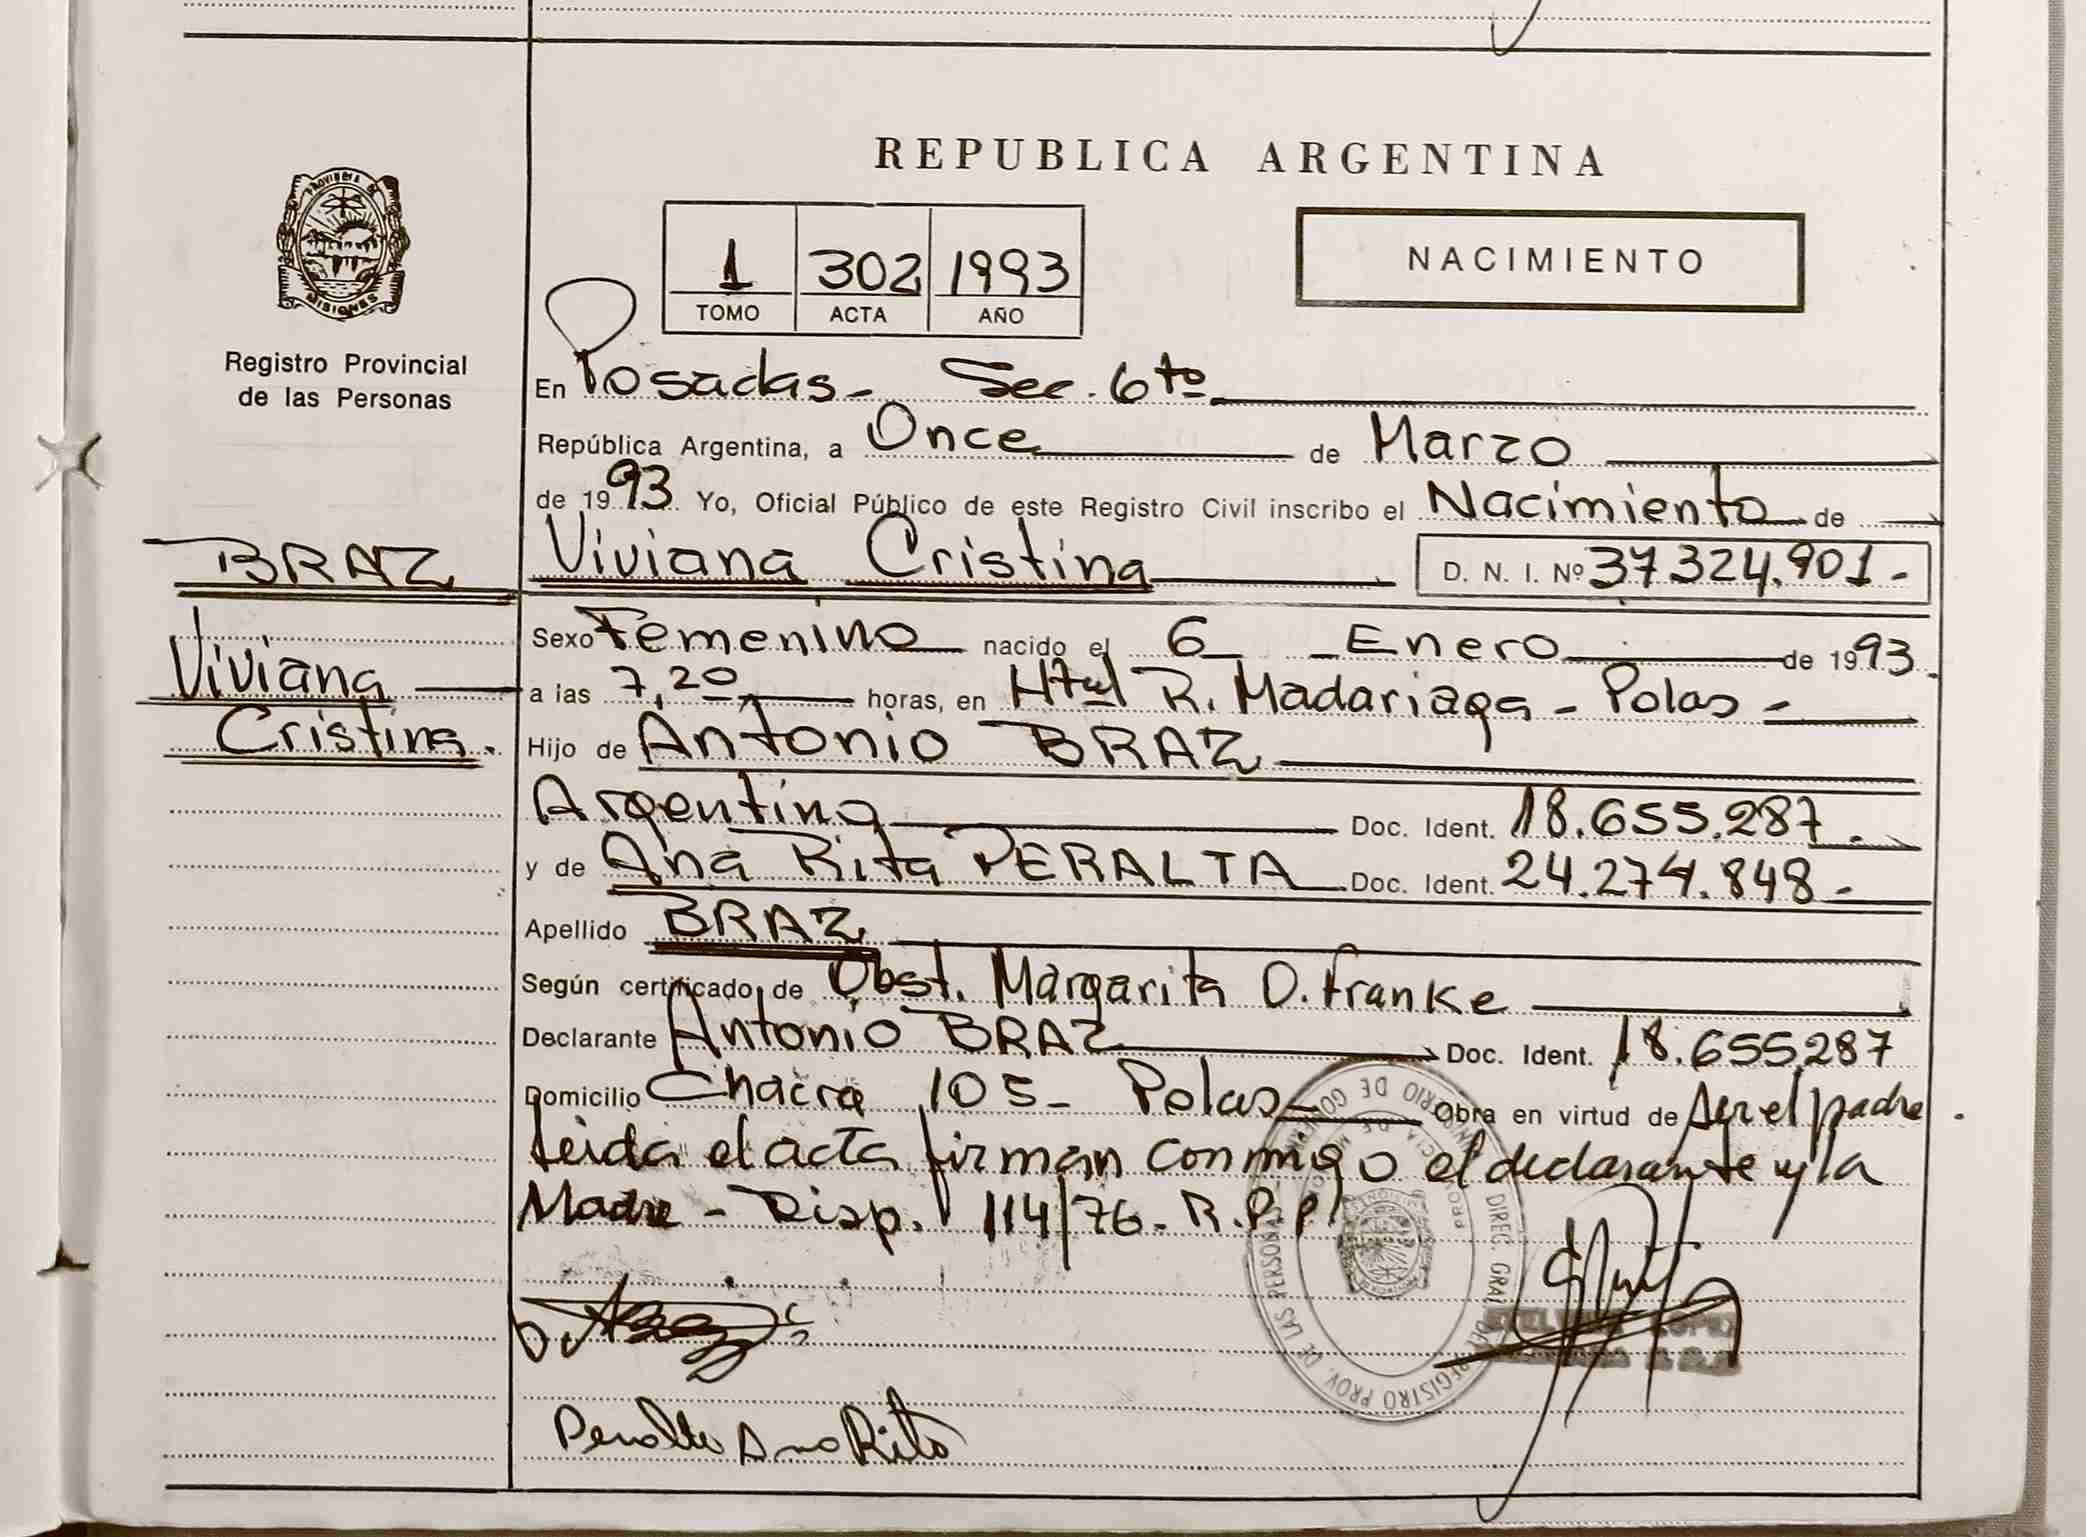 REPUBLICA ARGENTINA
PROVINCIA DE
MISIONES
Registro Provincial
de las Personas
1 302 1993
TOMO ACTA AÑO
NACIMIENTO
En Posadas - Sec. 6to
República Argentina, a Once de Marzo
de 1993 Yo, Oficial Público de este Registro Civil inscribo el Nacimiento de
BRAZ
Viviana Cristina D. N. I. Nº 37324.901.-
Viviana
Cristina.
Sexo Femenino nacido el 6 Enero de 1993.
a las 7,20 horas, en Htal R. Madariaga - Pdas -
Hijo de Antonio BRAZ
Argentino Doc. Ident. 18.655.287.
y de Ana Rita PERALTA Doc. Ident. 24.274.848-
Apellido BRAZ
Según certificado de Obst. Margarita O. Franke
Declarante Antonio BRAZ Doc. Ident. 18.655287
Domicilio Chacra 105- Pdas Obra en virtud de ser el padre.
Leida el acta firman conmigo el declarante y la
Madre - Disp. 114/76. R.P.P.
DIREC. GRAL. DEL REGISTRO PROV. DE LAS PERSONAS
Peralta Ana Rita